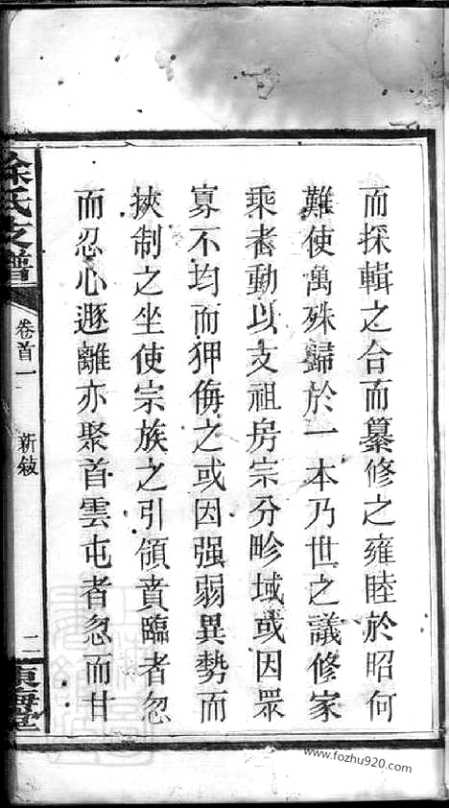 而採輯之合而纂修之雍睦於昭何
難使萬殊歸於一本乃世之議修家
乘者動以支祖房宗分畛域或因眾
寡不均而狎侮之或因强弱異勢而
挾制之坐使宗族之引領賁臨者忽
而忍心遯離亦聚首雲屯者忽而甘
徐氏支譜
卷首一
新敍
二
東海堂
www.fozhu920.com